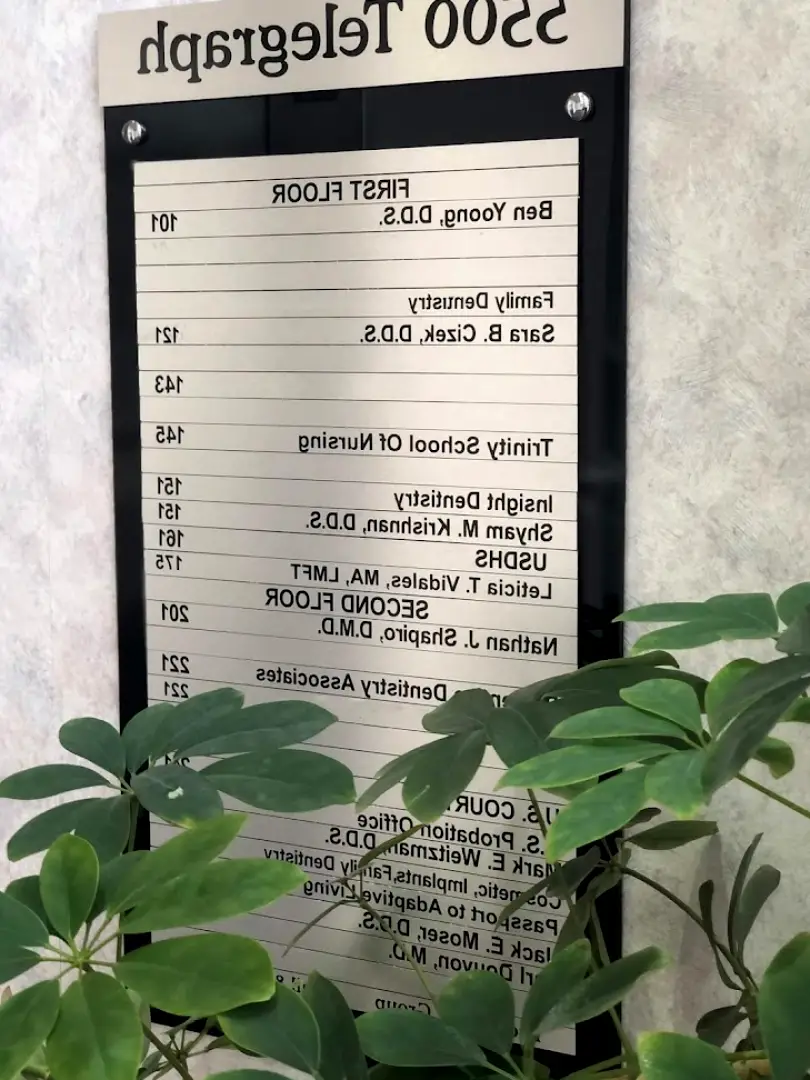 5500 Telegraph
FIRST FLOOR
Ben Yoong, D.D.S. 101
Family Dentistry
Sara B. Cizek, D.D.S. 121
143
Trinity School Of Nursing 145
Insight Dentistry 151
Shyam M. Krishnan, D.D.S. 151
USDHS 161
Leticia T. Vidales, MA, LMFT 175
SECOND FLOOR
Nathan J. Shapiro, D.M.D. 201
Dentistry Associates 221
221
U.S. COURT
U.S. Probation Office
Mark E. Weitzman, D.D.S.
Cosmetic, Implants, Family Dentistry
Passport to Adaptive Living
Jack E. Moser, D.D.S.
Douvon, M.D.
Group